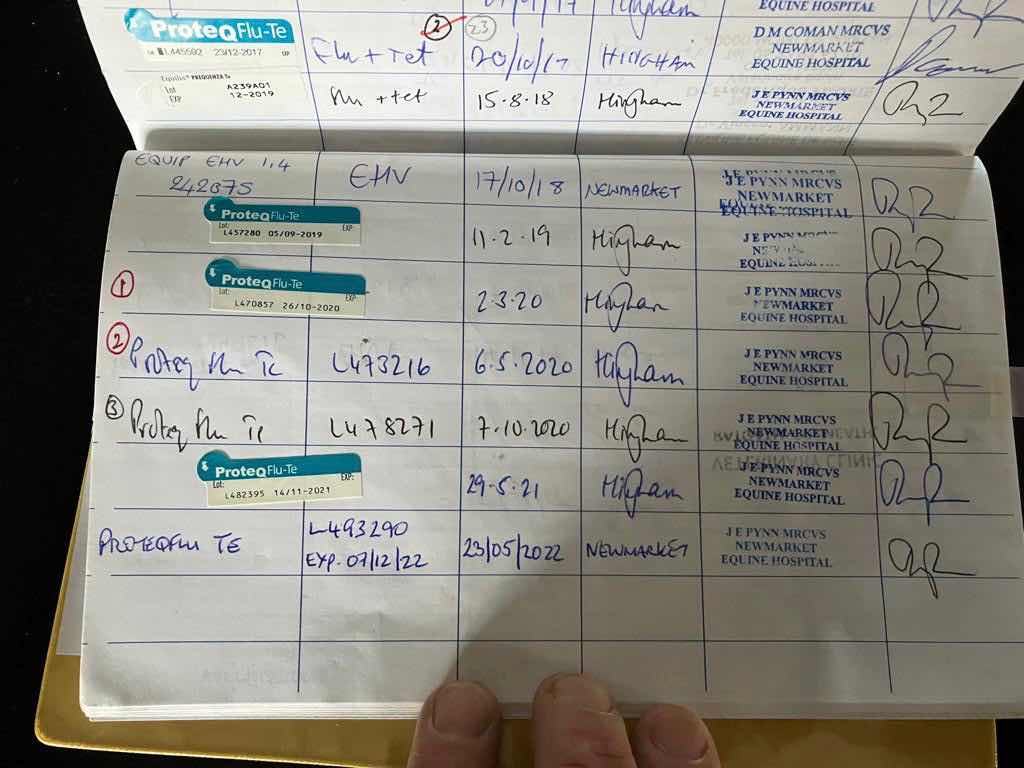 Hingham
EQUINE HOSPITAL
ProteqFlu-Te
Lot L445592 23/12/2017 EXP
Flu + Tet
2 23
20/10/17
HINGHAM
D M COMAN MRCVS
NEWMARKET
EQUINE HOSPITAL
Equilis® PREQUENZA Te
Lot A239A01
EXP 12-2019
Flu + tet
15.8.18
Hingham
J E PYNN MRCVS
NEWMARKET
EQUINE HOSPITAL
EQUIP EHV 1.4
242075
EHV
17/10/18
NEWMARKET
J E PYNN MRCVS
NEWMARKET
EQUINE HOSPITAL
ProteqFlu-Te
Lot: EXP:
L457280 05/09-2019
11.2.19
Hingham
J E PYNN MRCVS
EQUINE HOSPITAL
1
ProteqFlu-Te
Lot: EXP:
L470857 26/10-2020
2.3.20
Hingham
J E PYNN MRCVS
NEWMARKET
EQUINE HOSPITAL
2
Proteq Flu Te
L473216
6.5.2020
Hingham
J E PYNN MRCVS
NEWMARKET
EQUINE HOSPITAL
3
Proteq Flu Te
L478271
7.10.2020
Hingham
J E PYNN MRCVS
NEWMARKET
EQUINE HOSPITAL
ProteqFlu-Te
Lot: EXP:
L482395 14/11-2021
29-5-21
Hingham
J E PYNN MRCVS
NEWMARKET
EQUINE HOSPITAL
PROTEQFLU TE
L493290
EXP. 07/12/22
23/05/2022
NEWMARKET
J E PYNN MRCVS
NEWMARKET
EQUINE HOSPITAL